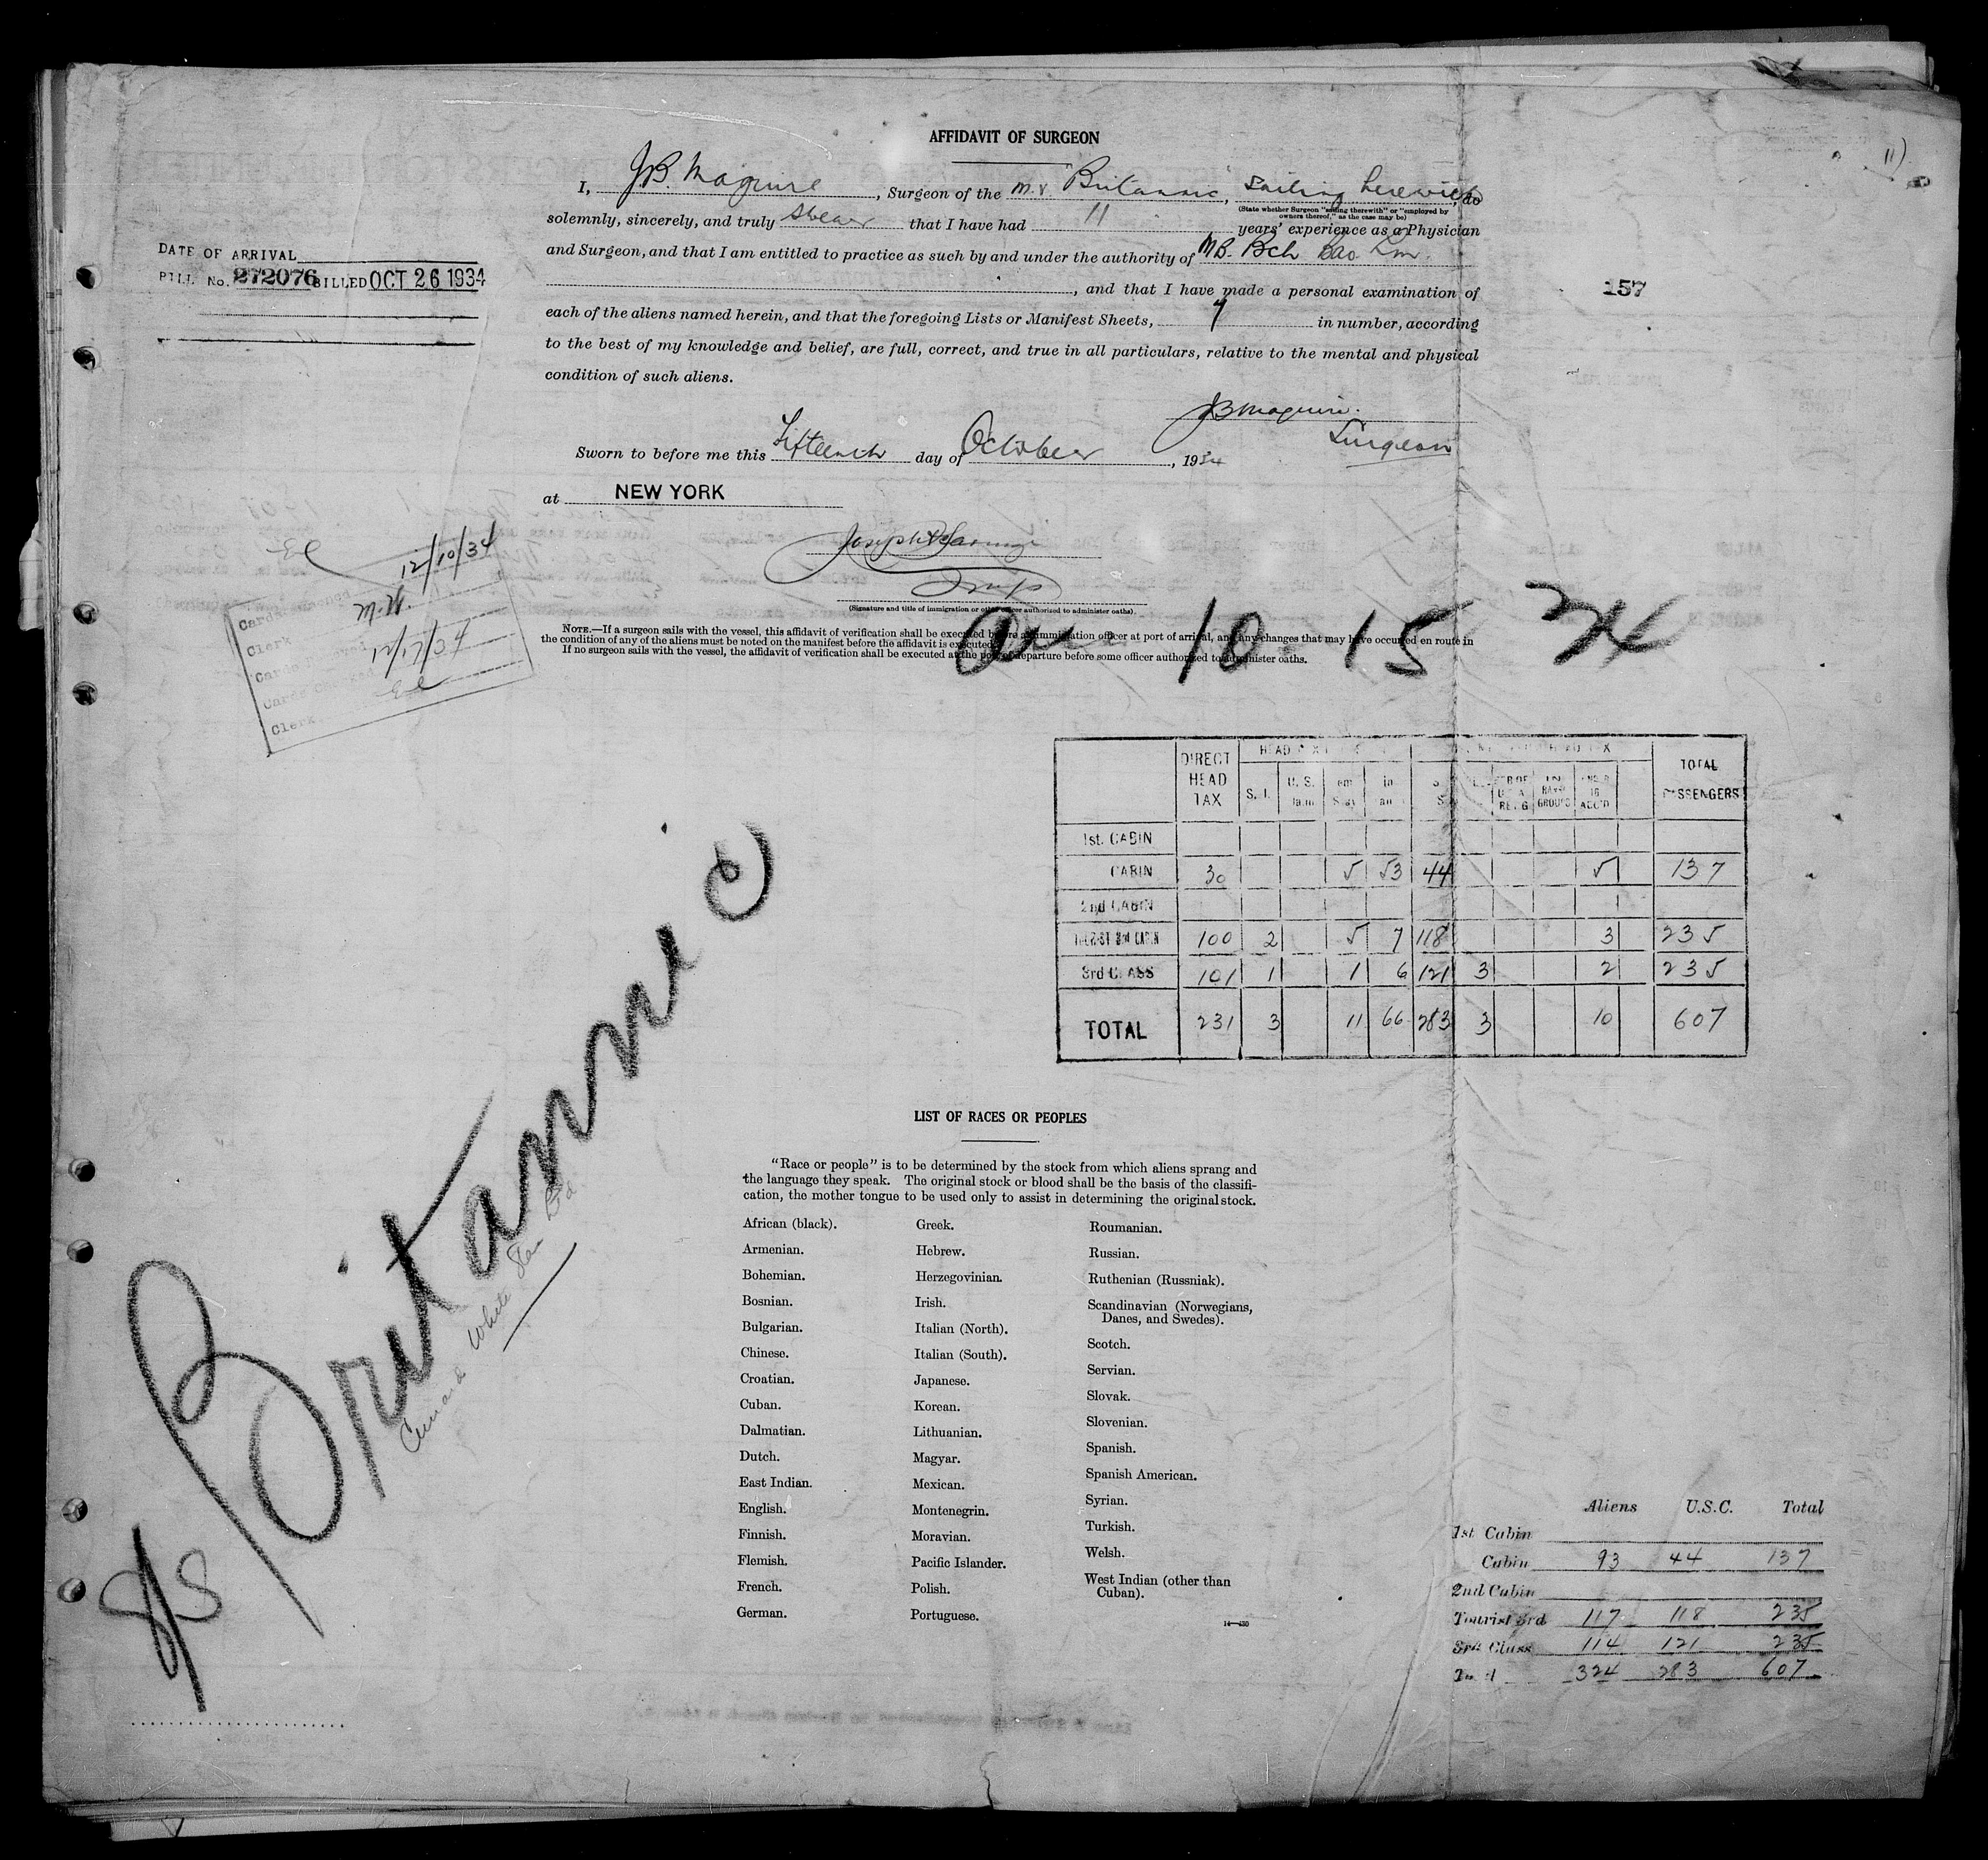 AFFIDAVIT OF SURGEON
I, J.B. Maguire, Surgeon of the M.V. Britannic, sailing herewith, do
(State whether Surgeon "sailing therewith" or "employed by
owners thereof," as the case may be)
solemnly, sincerely, and truly swear that I have had 11 years' experience as a Physician
and Surgeon, and that I am entitled to practice as such by and under the authority of M.B. Bch
, and that I have made a personal examination of
each of the aliens named herein, and that the foregoing Lists or Manifest Sheets, in number, according
to the best of my knowledge and belief, are full, correct, and true in all particulars, relative to the mental and physical
condition of such aliens.
DATE OF ARRIVAL
BILL No. 272076 BILLED OCT 26 1934
157
11)
JB Maguire.
Surgeon
Sworn to before me this Fifteenth day of October, 1934
at NEW YORK
Joseph
(Signature and title of immigration or other officer authorized to administer oaths).
NOTE.—If a surgeon sails with the vessel, this affidavit of verification shall be executed before an immigration officer at port of arrival, and any changes that may have occurred en route in
the condition of any of the aliens must be noted on the manifest before the affidavit is executed.
If no surgeon sails with the vessel, the affidavit of verification shall be executed at the port of departure before some officer authorized to administer oaths.
12/10/34
Clerk M.W.
12/17/34
Cards Checked
Clerk
10 15 34
DIRECT HEAD TAX S. I. U. S. TOTAL PASSENGERS
1st. CABIN
CABIN 30 5 53 44 5 137
2nd CABIN
TOURIST 3rd CABIN 100 2 5 7 118 3 235
3rd CLASS 101 1 1 6 121 3 2 235
TOTAL 231 3 11 66 283 3 10 607
S/S Britannic
Cunard White Star Ltd
LIST OF RACES OR PEOPLES
"Race or people" is to be determined by the stock from which aliens sprang and
the language they speak. The original stock or blood shall be the basis of the classifi-
cation, the mother tongue to be used only to assist in determining the original stock.
African (black).
Armenian.
Bohemian.
Bosnian.
Bulgarian.
Chinese.
Croatian.
Cuban.
Dalmatian.
Dutch.
East Indian.
English.
Finnish.
Flemish.
French.
German.
Greek.
Hebrew.
Herzegovinian.
Irish.
Italian (North).
Italian (South).
Japanese.
Korean.
Lithuanian.
Magyar.
Mexican.
Montenegrin.
Moravian.
Pacific Islander.
Polish.
Portuguese.
Roumanian.
Russian.
Ruthenian (Russniak).
Scandinavian (Norwegians,
Danes, and Swedes).
Scotch.
Servian.
Slovak.
Slovenian.
Spanish.
Spanish American.
Syrian.
Turkish.
Welsh.
West Indian (other than
Cuban).
14—430
Aliens U.S.C. Total
1st Cabin
Cabin 93 44 137
2nd Cabin
Tourist 3rd 117 118 235
3rd Class 114 121 235
Total 324 283 607